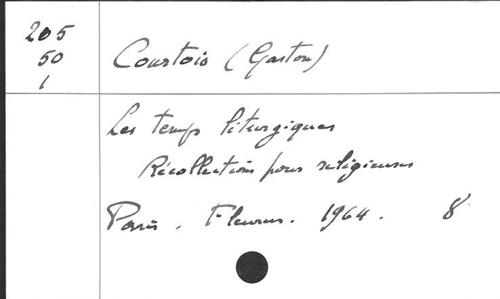 205
50
1
Courtois (Gaston)
Les temps liturgiques
Récollections pour religieuses
Paris. Fleurus. 1964. 8°